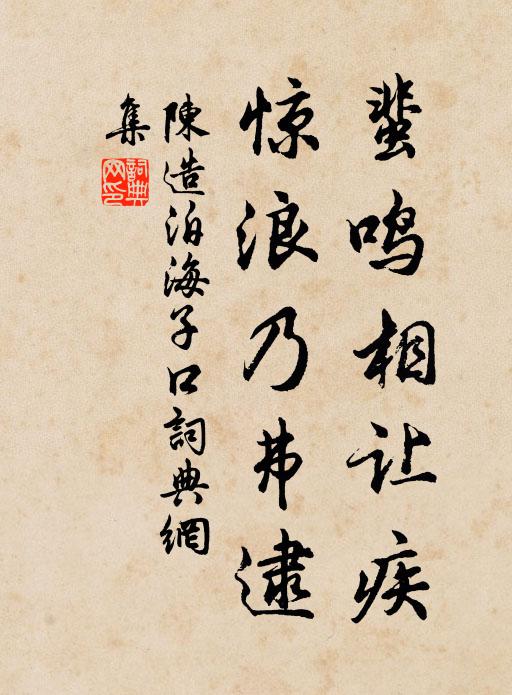 蜚鸣相让疾
惊浪乃弗逮
陳造泊海子口詞典網
集
詞典网印